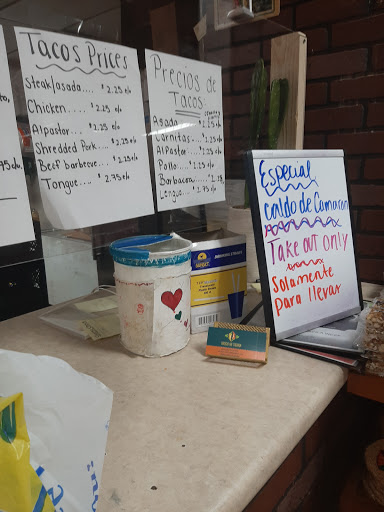 Tacos Prices
Steak/asada.... $2.25 c/o
Chicken.... $2.25 c/o
Alpastor.... $2.25 c/o
Shredded Pork... $2.25 c/o
Beef barbecue... $2.25 c/o
Tongue.... $2.75 c/o
Precios de
Tacos
Asada $2.25 c/o
Carnitas $2.25 c/o
AlPastor $2.25 c/o
Pollo $2.25 c/o
Barbacoa
Lengua $2.75 c/o
Especial
Caldo de Camaron
Take out only
Solamente
para llevar